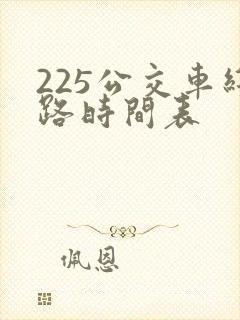 225公交車
路時間表
佩恩